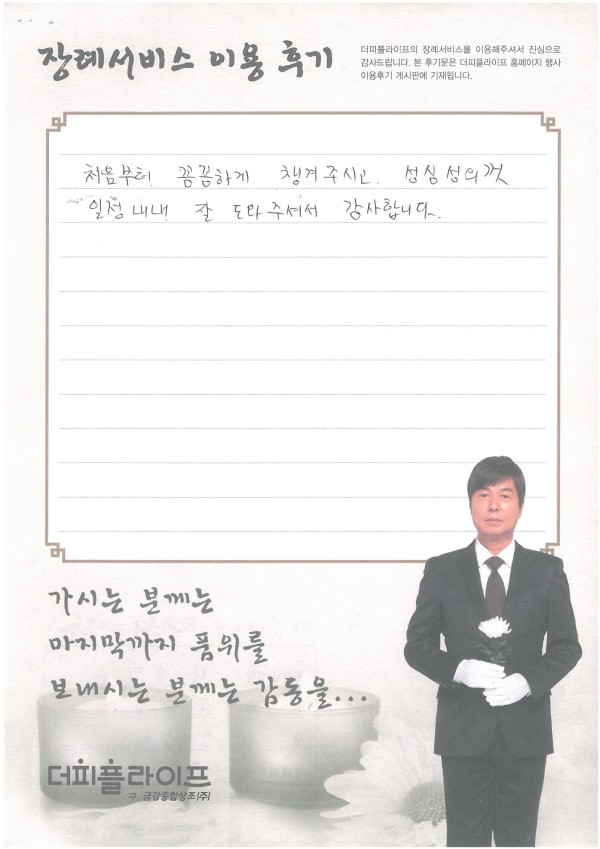 장례서비스 이용 후기
더피플라이프의 장례서비스를 이용해주셔서 진심으로
감사드립니다. 본 후기문은 더피플라이프 홈페이지 행사
이용후기 게시판에 기재됩니다.
처음부터 꼼꼼하게 챙겨주시고, 성심성의껏
일정내내 잘 도와주셔서 감사합니다.
가시는 분께는
마지막까지 품위를
보내시는 분께는 감동을...
더피플라이프
구. 금강종합상조(주)